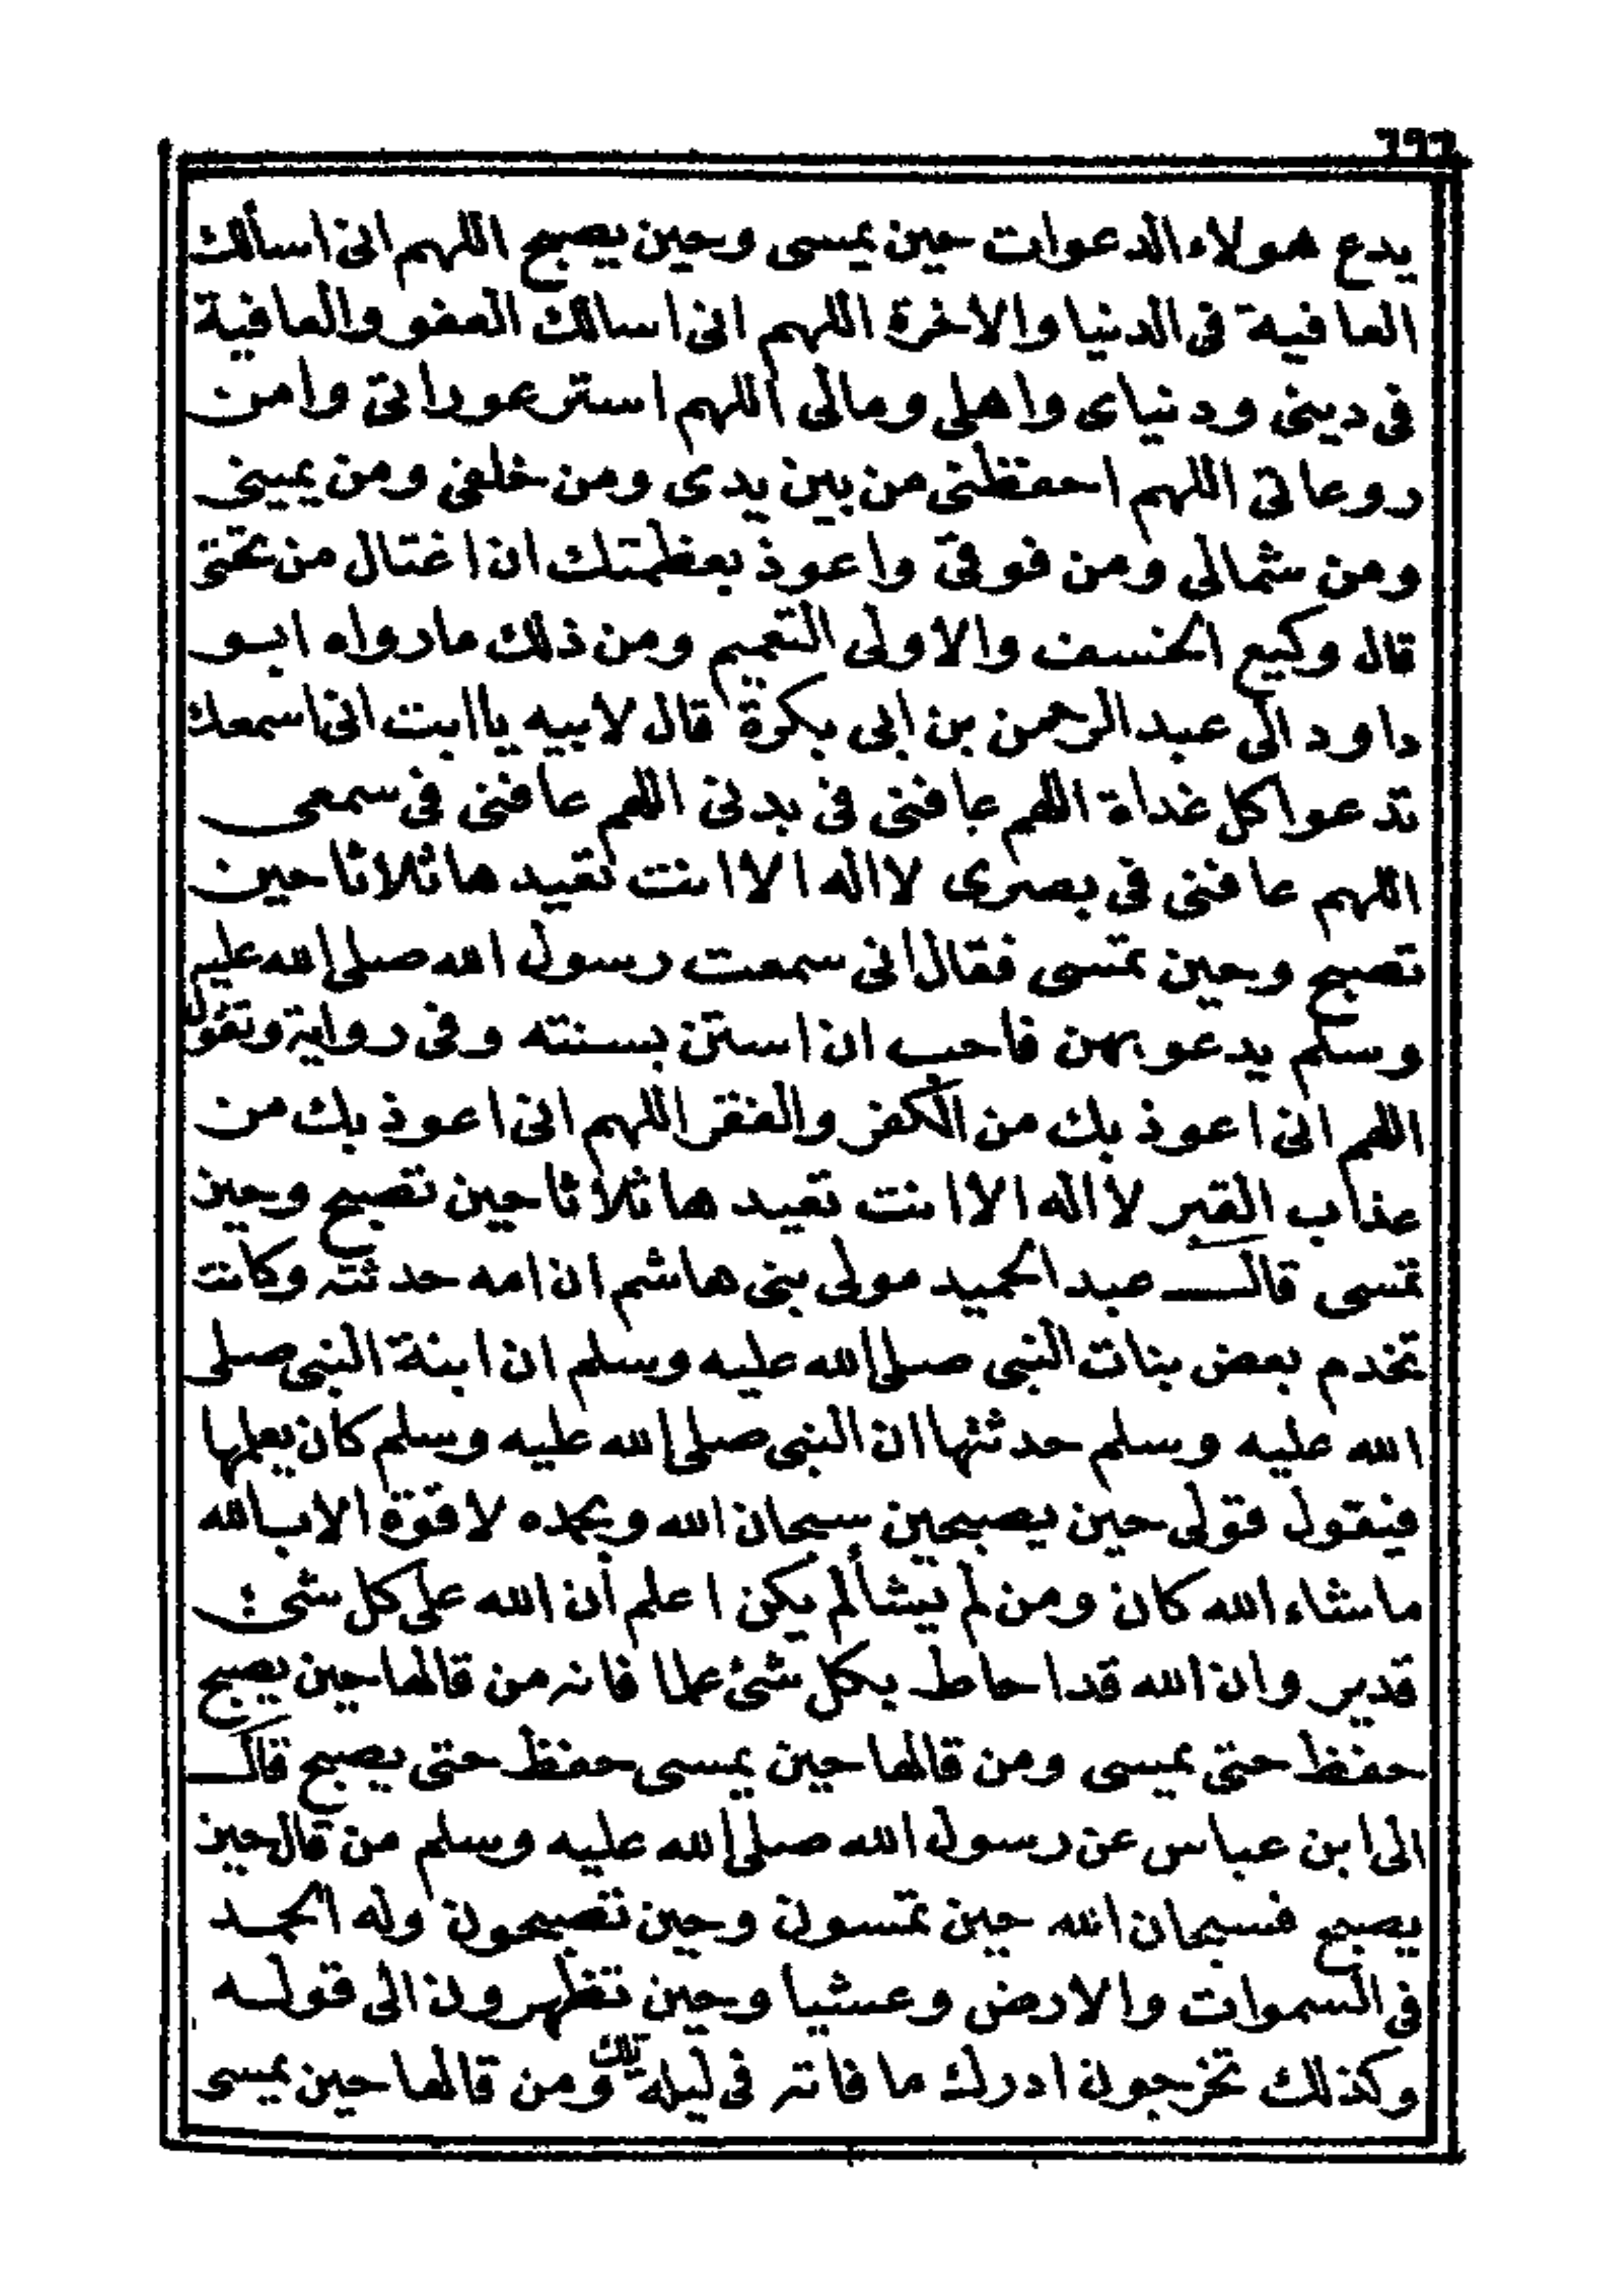 ٦٩٦
يدع هولاء الدعوات حين يمسى وحين يصبح اللهم انى اسألك
العافية فى الدنيا والاخرة اللهم انى اسالك العفو والعافية
فى دينى ودنياى واهلى ومالى اللهم استر عوراتى وامن
روعاتى اللهم احفظنى من بين يدى ومن خلفى ومن يمينى
ومن شمالى ومن فوقى واعوذ بعظمتك ان اغتال من تحتى
قال وكيع الخسف والاولى التعميم ومن ذلك مارواه ابو
داود الى عبد الرحمن بن ابى بكرة قال لابيه ياابت انى اسمعك
تدعوا كل غداة اللهم عافنى فى بدنى اللهم عافنى فى سمعى
اللهم عافنى فى بصرى لااله الا انت تعيدها ثلاثا حين
تصبح وحين تمسى فقال انى سمعت رسول الله صلى الله عليه
وسلم يدعو بهن فاحب ان استن بسنته وفى رواية وتقول
اللهم انى اعوذ بك من الكفر والفقر اللهم انى اعوذ بك من
عذاب القبر لااله الا انت تعيدها ثلاثا حين تصبح وحين
تمسى قال عبد الحميد مولى بنى هاشم ان امه حدثته وكانت
تخدم بعض بنات النبى صلى الله عليه وسلم ان ابنة النبى صلى
الله عليه وسلم حدثتها ان النبى صلى الله عليه وسلم كان يعلمها
فيقول قولى حين يصبحين سبحان الله وبحمده لا قوة الا بالله
ماشاء الله كان ومن لم يشأ لم يكن اعلم أن الله على كل شئ
قدير وان الله قد احاط بكل شئ علما فانه من قالها حين يصبح
حفظ حتى يمسى ومن قالها حين يمسى حفظ حتى يصبح قال
الى ابن عباس عن رسول الله صلى الله عليه وسلم من قال حين
يصبح فسبحان الله حين تمسون وحين تصبحون وله الحمد
فى السموات والارض وعشيا وحين تظهرون الى قوله
وكذلك تخرجون ادرك ما فاته فى ليله تلك ومن قالها حين يمسى